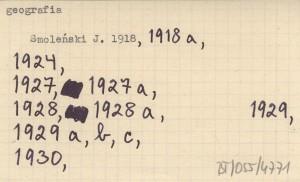 geografia
Smoleński J. 1918, 1918a,
1924,
1927, 1927a,
1928, 1928a, 1929,
1929a, b, c,
1930,
BT/055/4771